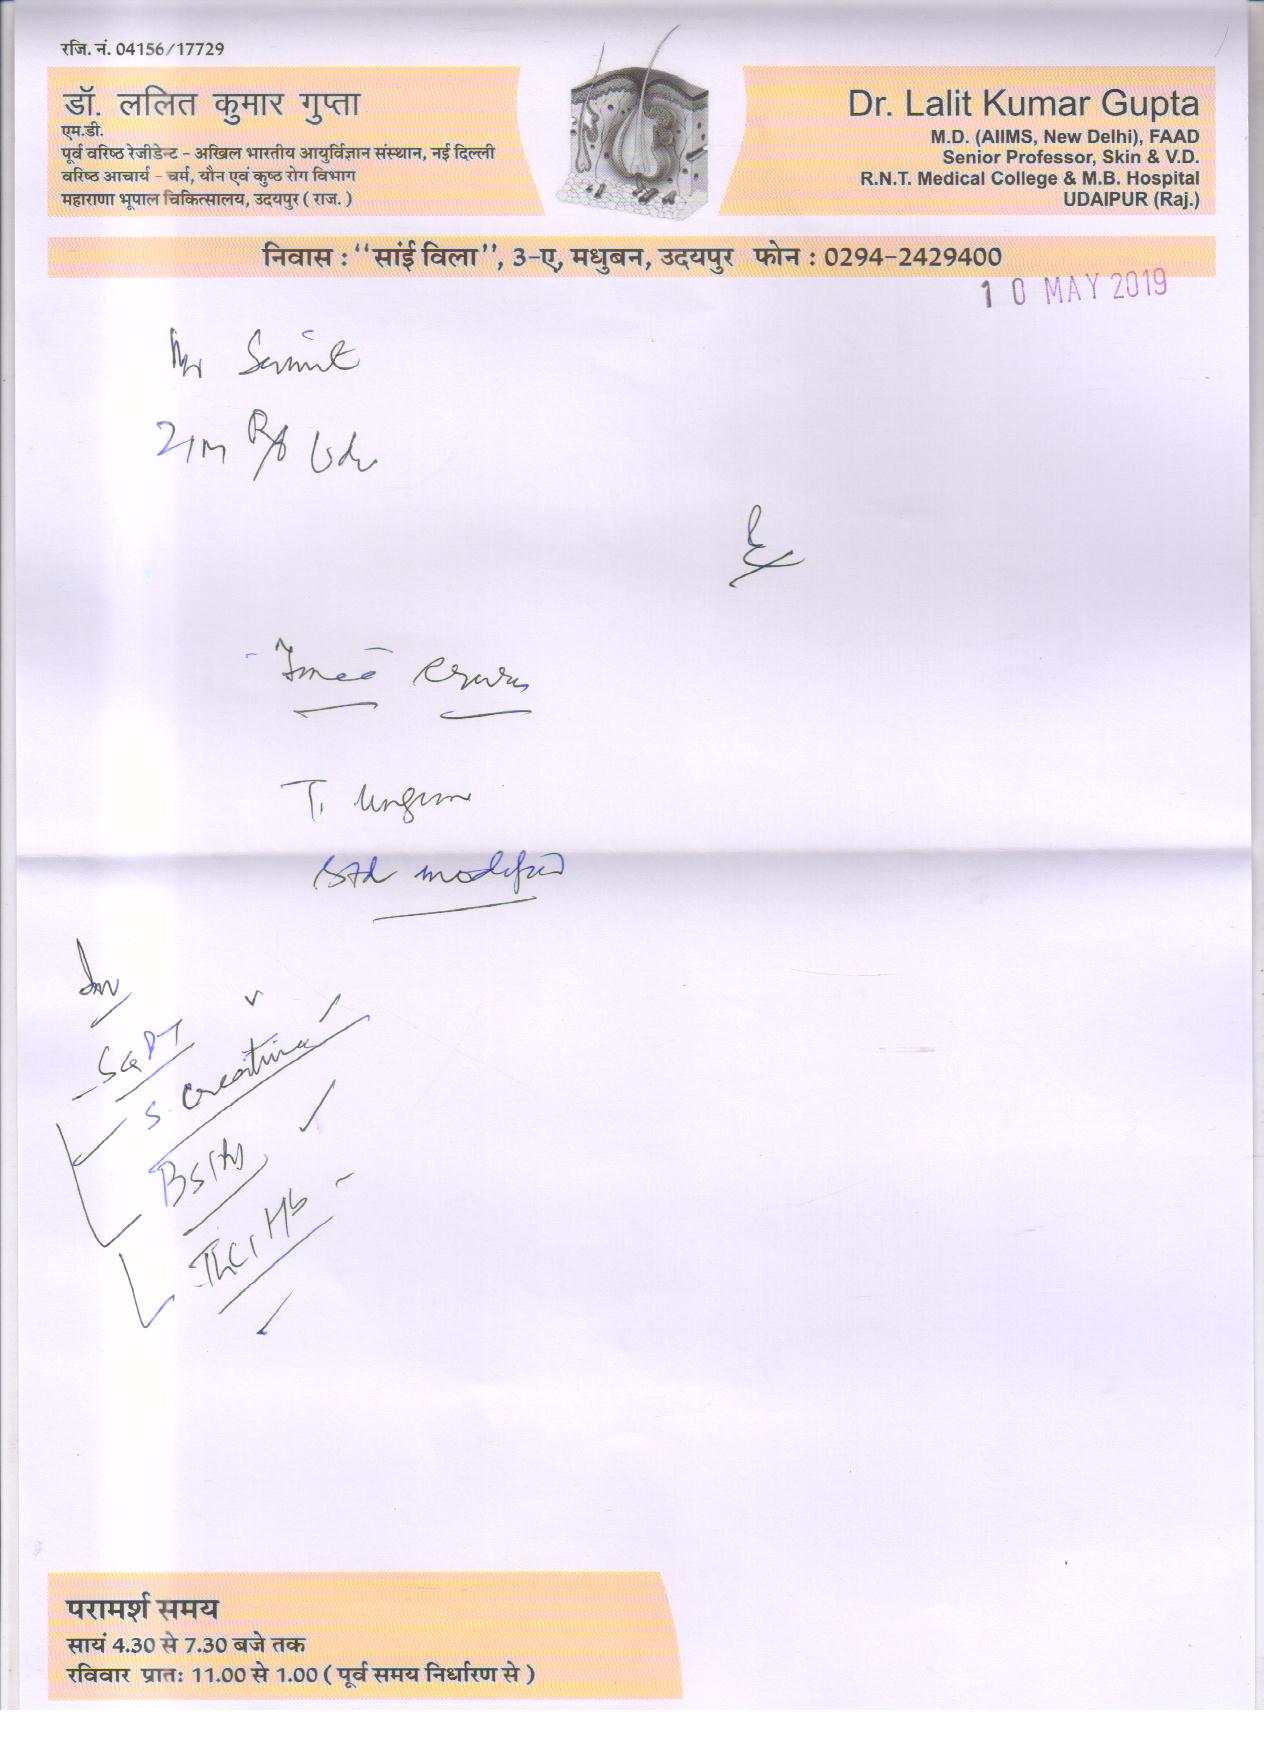 रजि. नं. 04156/17729
डॉ. ललित कुमार गुप्ता
एम.डी.
पूर्व वरिष्ठ रेजीडेन्ट - अखिल भारतीय आयुर्विज्ञान संस्थान, नई दिल्ली
वरिष्ठ आचार्य - चर्म, यौन एवं कुष्ठ रोग विभाग
महाराणा भूपाल चिकित्सालय, उदयपुर ( राज. )
Dr. Lalit Kumar Gupta
M.D. (AIIMS, New Delhi), FAAD
Senior Professor, Skin & V.D.
R.N.T. Medical College & M.B. Hospital
UDAIPUR (Raj.)
निवास : ‘‘सांई विला’’, 3-ए, मधुबन, उदयपुर फोन : 0294-2429400
10 MAY 2019
Mr
21M R/o Udr
T.
modified
Inv
SGPT
S. Creatinine
Hb
परामर्श समय
सायं 4.30 से 7.30 बजे तक
रविवार प्रातः 11.00 से 1.00 ( पूर्व समय निर्धारण से )